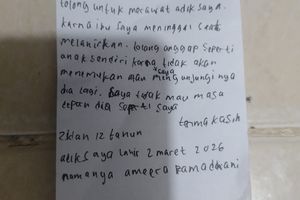 tolong untuk merawat adik saya.
karna ibu saya meninggal saat
melahirkan. tolong anggap seperti
anak sendiri karna tidak akan
saya
menemukan atau mengunjungi nya
dia lagi. saya tidak mau masa
depan dia seperti saya
terma kasih
Zklan 12 tahun
adik saya lahir 2 maret 2026
namanya ameera ramadhani